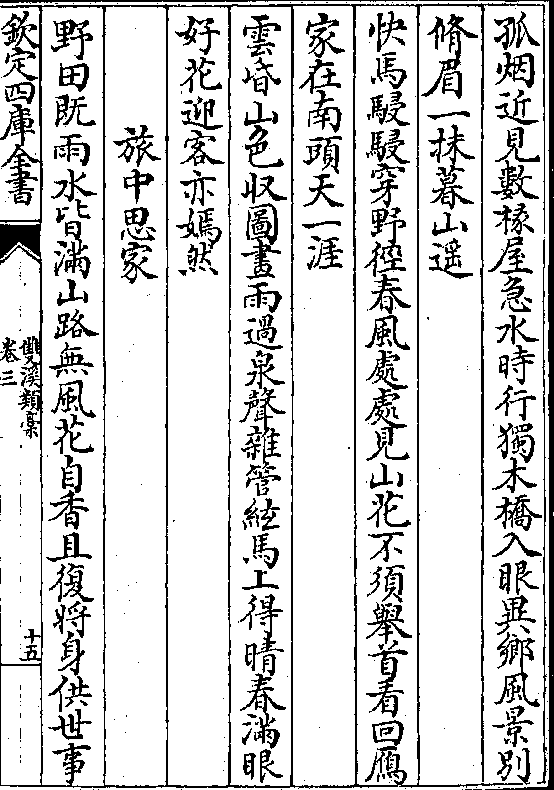 孤烟近見數椽屋急水時行獨木橋入眼異鄉風景别
脩眉一抹暮山遥
快馬駸駸穿野徑春風處處見山花不須舉首看回鴈
家在南頭天一涯
雲昏山色収圖畫雨過泉聲雜管絃馬上得晴春滿眼
好花迎客亦嫣然
旅中思家
野田既雨水皆滿山路無風花自香且復將身供世事
欽定四庫全書
雙溪類稾
卷三
十五